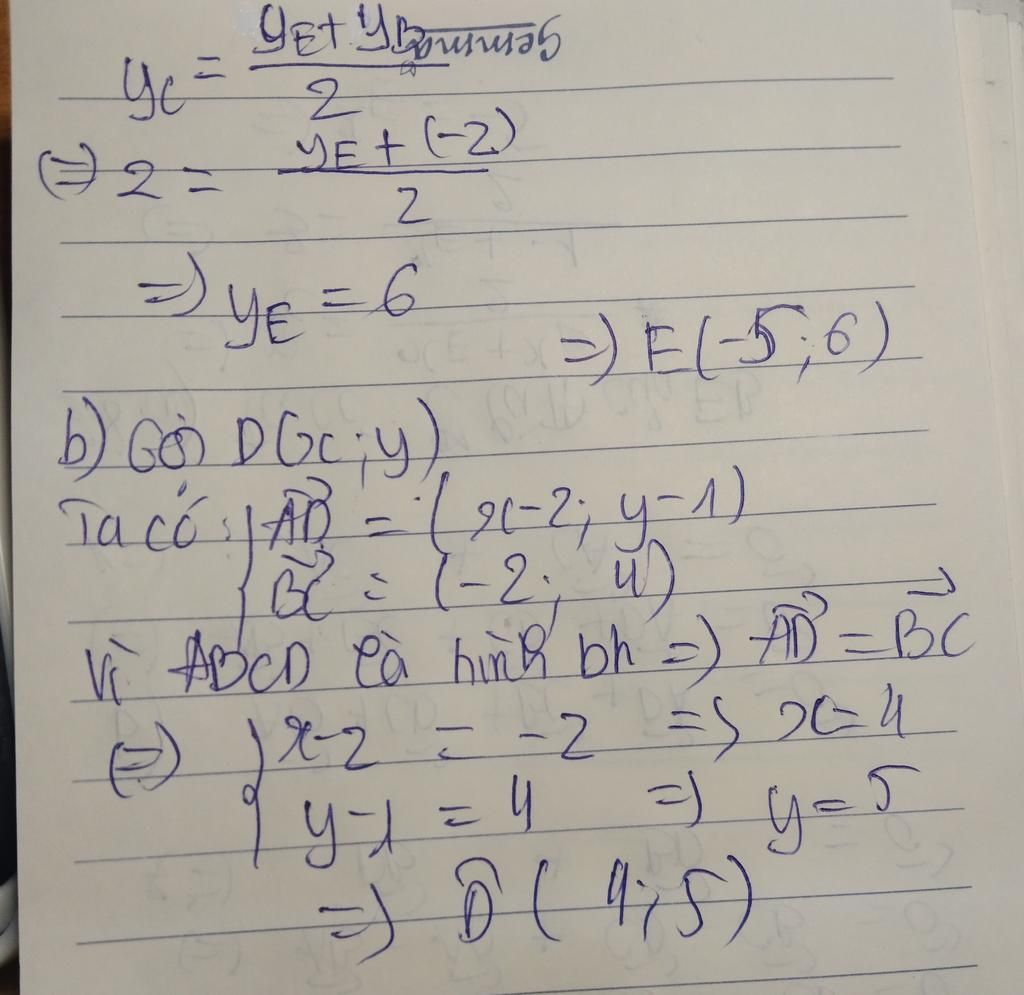 Gemma
y_C = (y_E + y_B) / 2
(=) 2 = (y_E + (-2)) / 2
=) y_E = 6
=) E(-5; 6)
b) Gọi D(x; y)
Ta có: { AD→ = (x-2; y-1)
BC→ = (-2; 4)
Vì ABCD là hình bh =) AD→ = BC→
(=) { x-2 = -2 =) x=4
y-1 = 4 =) y=5
=) D(4; 5)